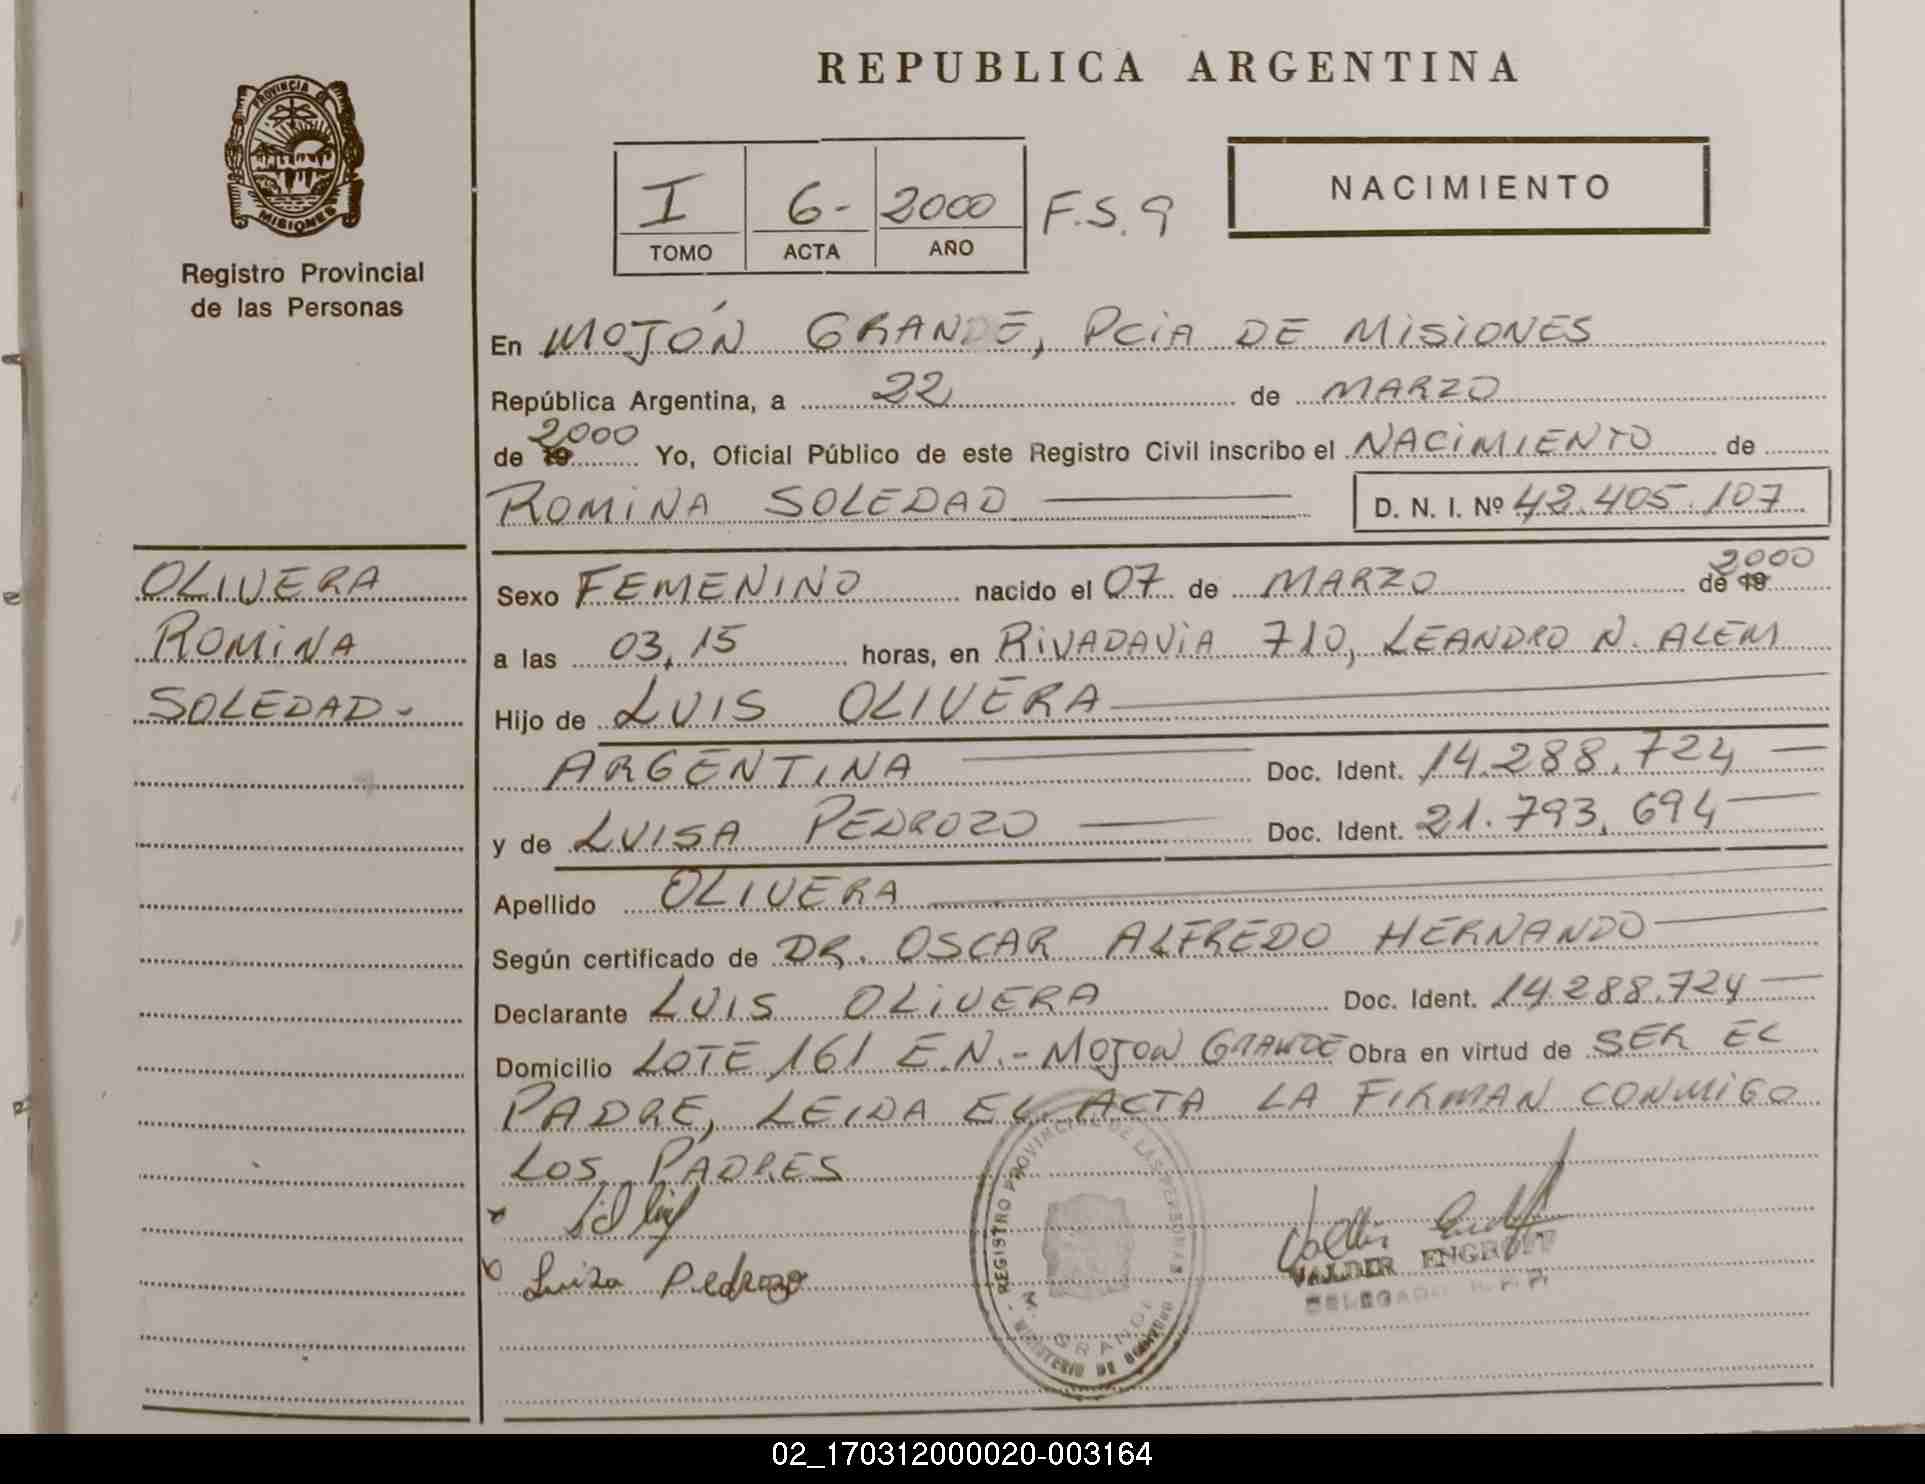 PROVINCIA DE
MISIONES
Registro Provincial
de las Personas
OLIVERA
ROMINA
SOLEDAD-
REPUBLICA ARGENTINA
I 6- 2000 F.S. 9
TOMO ACTA AÑO
NACIMIENTO
En MOJÓN GRANDE, PCIA DE MISIONES
República Argentina, a 22 de MARZO
de 19 2000 Yo, Oficial Público de este Registro Civil inscribo el NACIMIENTO de
ROMINA SOLEDAD D. N. I. Nº 42.405.107
Sexo FEMENINO nacido el 07 de MARZO de 19 2000
a las 03,15 horas, en RIVADAVIA 710, LEANDRO N. ALEM
Hijo de LUIS OLIVERA
ARGENTINA Doc. Ident. 14.288.724
y de LUISA PEDROZO Doc. Ident. 21.793,694
Apellido OLIVERA
Según certificado de DR. OSCAR ALFREDO HERNANDO
Declarante LUIS OLIVERA Doc. Ident. 14.288.724
Domicilio LOTE 161 E.N.- MOJON GRANDE Obra en virtud de SER EL
PADRE, LEIDA EL ACTA LA FIRMAN CONMIGO
LOS PADRES
Luiza Pedrozo
REGISTRO PROVINCIAL DE LAS PERSONAS
M. GRANDE
MINISTERIO DE GOBIERNO
VALDER ENGROFF
DELEGADO R.P.P.
02_170312000020-003164